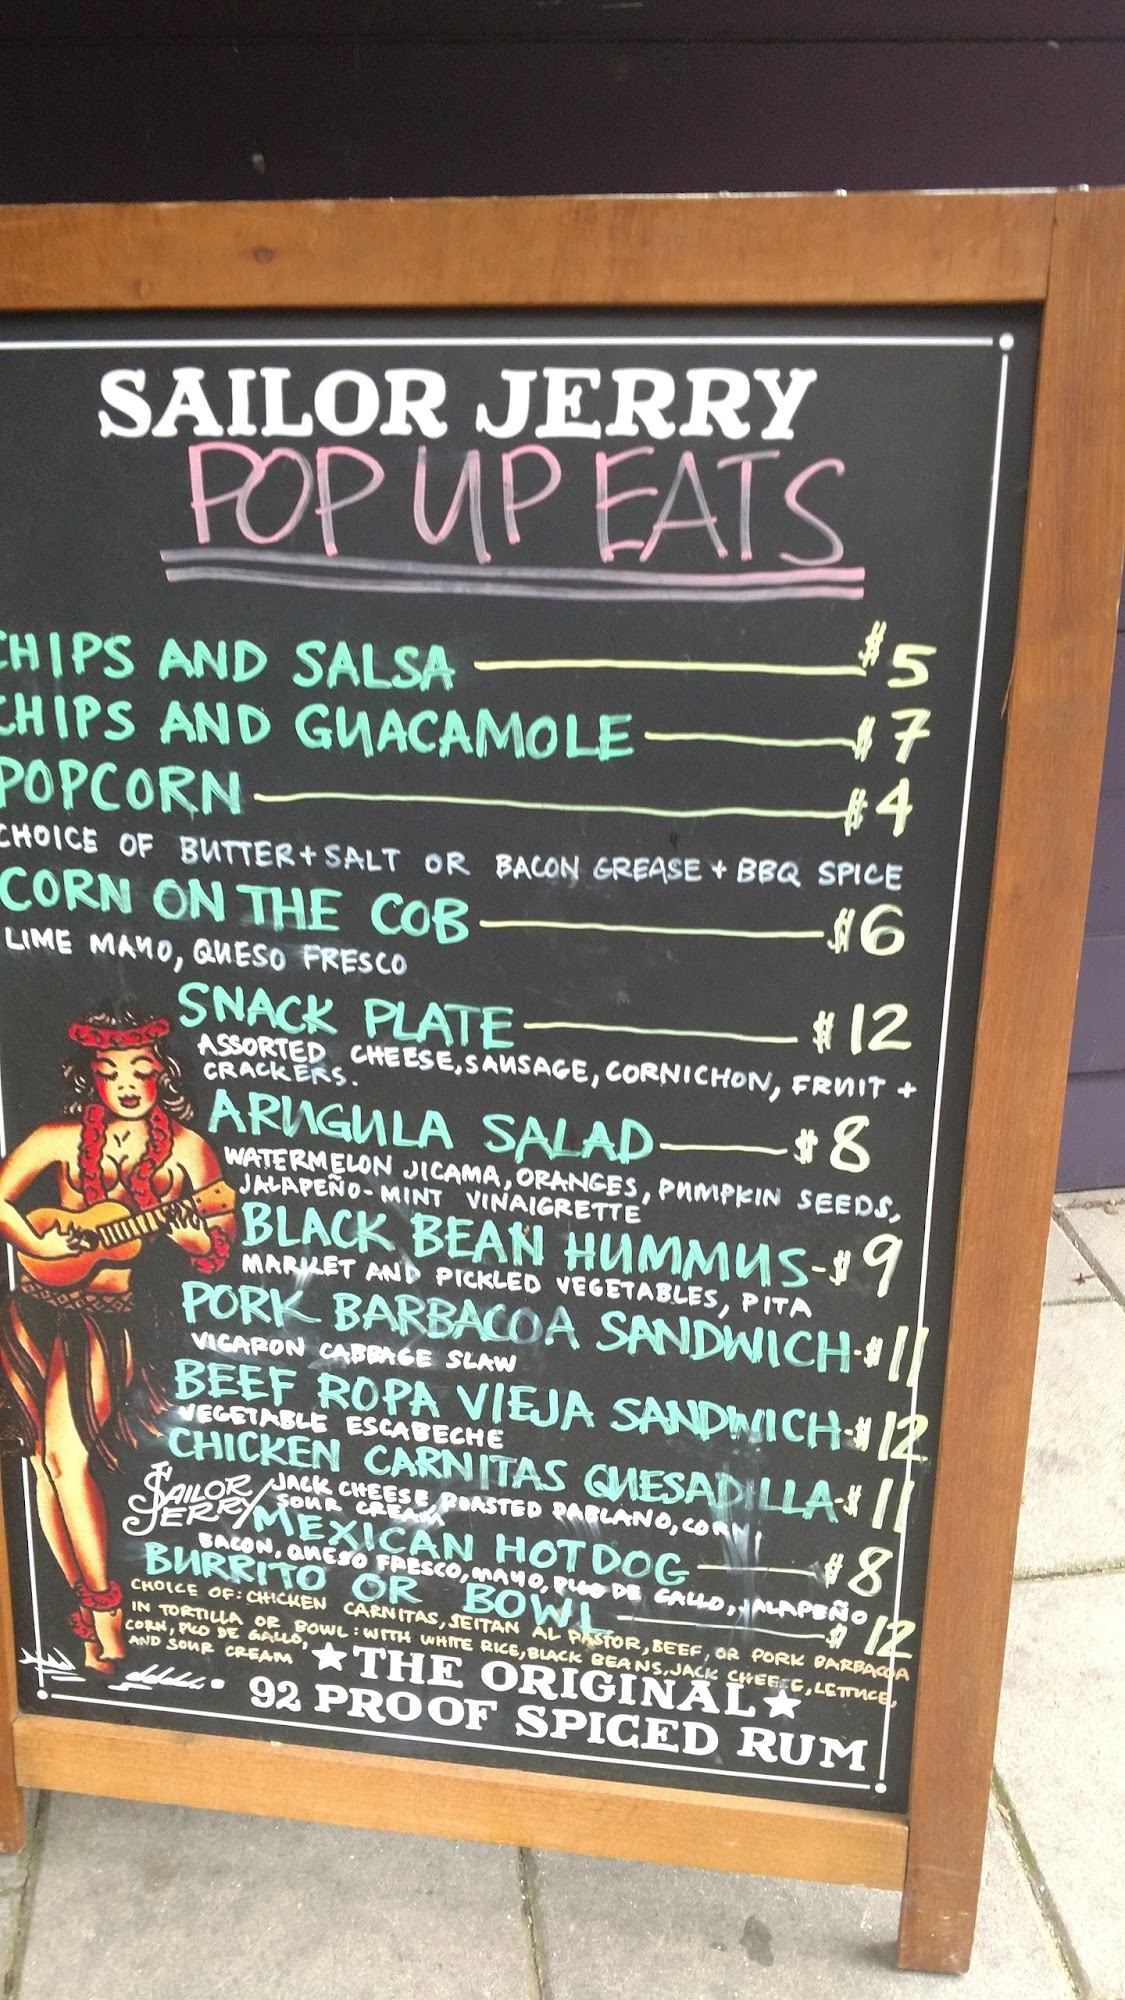 SAILOR JERRY
POP UP EATS
CHIPS AND SALSA $5
CHIPS AND GUACAMOLE $7
POPCORN $4
CHOICE OF BUTTER + SALT OR BACON GREASE + BBQ SPICE
CORN ON THE COB $6
LIME MAYO, QUESO FRESCO
SNACK PLATE $12
ASSORTED CHEESE, SAUSAGE, CORNICHON, FRUIT +
CRACKERS.
ARUGULA SALAD $8
WATERMELON JICAMA, ORANGES, PUMPKIN SEEDS,
JALAPEÑO-MINT VINAIGRETTE
BLACK BEAN HUMMUS-$9
MARKET AND PICKLED VEGETABLES, PITA
PORK BARBACOA SANDWICH-$11
VIGARON CABBAGE SLAW
BEEF ROPA VIEJA SANDWICH-$12
VEGETABLE ESCABECHE
CHICKEN CARNITAS QUESADILLA-$11
JACK CHEESE, ROASTED PABLANO, CORN,
SOUR CREAM
SAILOR
JERRY
MEXICAN HOTDOG $8
BACON, QUESO FRESCO, MAYO, PICO DE GALLO, JALAPEÑO
BURRITO OR BOWL $12
CHOICE OF: CHICKEN CARNITAS, SEITAN AL PASTOR, BEEF, OR PORK BARBACOA
IN TORTILLA OR BOWL: WITH WHITE RICE, BLACK BEANS, JACK CHEESE, LETTUCE,
CORN, PICO DE GALLO,
AND SOUR CREAM
★THE ORIGINAL★
92 PROOF SPICED RUM